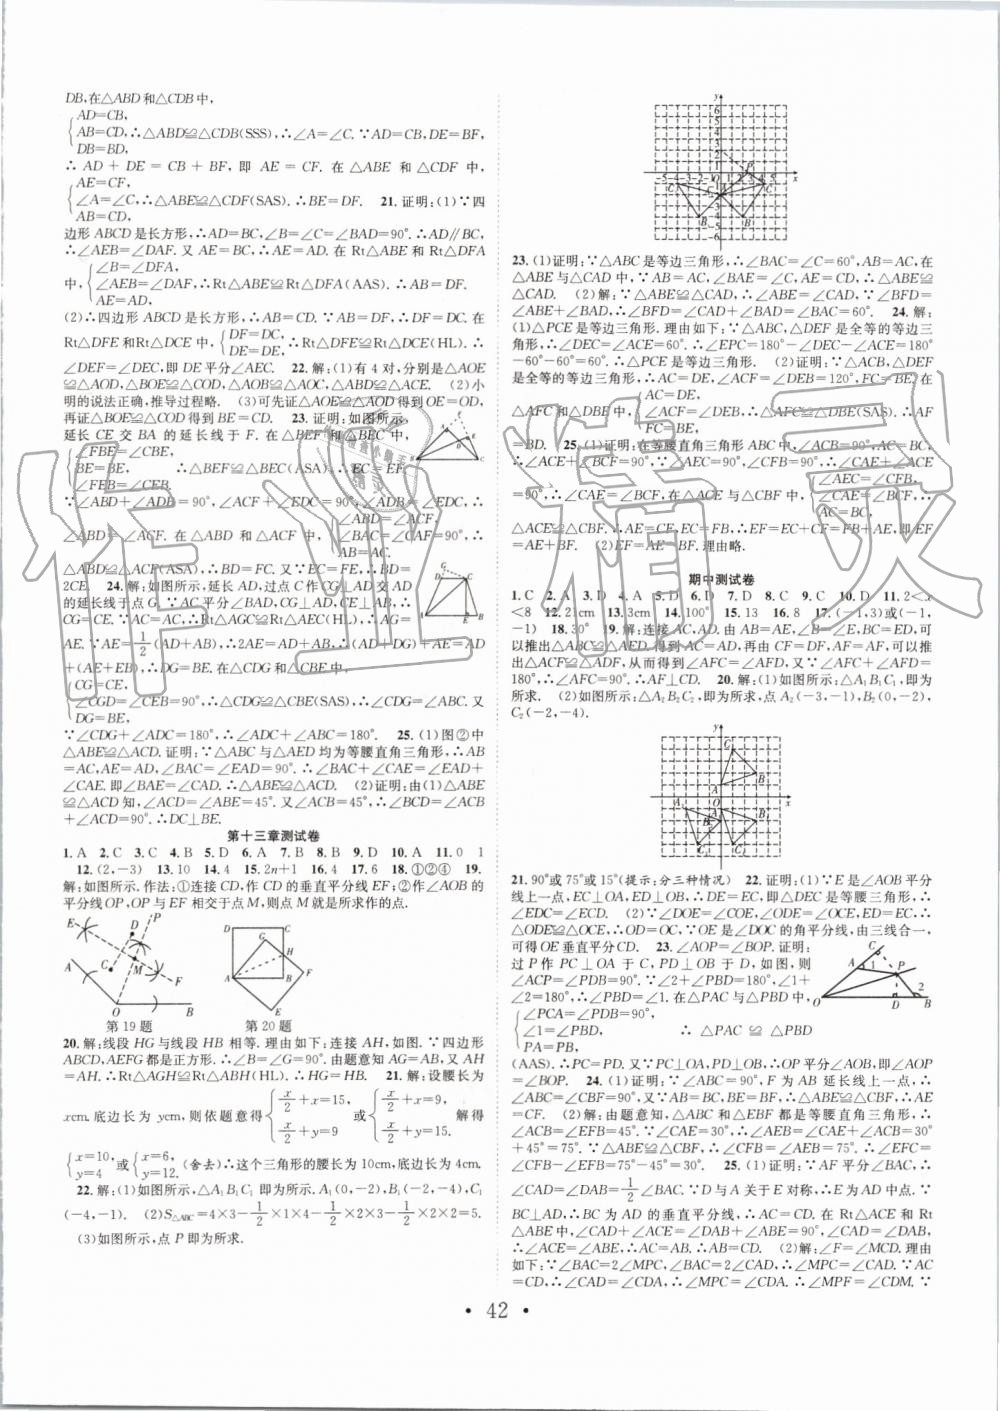 DB,在△ABD和△CDB中,
AD=CB,
AB=CD,∴△ABD≌△CDB(SSS),∴∠A=∠C.∵AD=CB,DE=BF,
DB=BD,
∴AD+DE=CB+BF,即AE=CF.在△ABE和△CDF中,
AE=CF,
∠A=∠C,∴△ABE≌△CDF(SAS).∴BE=DF. 21.证明:(1)∵四
AB=CD,
边形ABCD是长方形,∴AD=BC,∠B=∠C=∠BAD=90°.∴AD∥BC,
∴∠AEB=∠DAF.又AE=BC,∴AE=AD.在Rt△ABE和Rt△DFA
∠B=∠DFA,
中,∠AEB=∠DAF,∴Rt△ABE≌Rt△DFA(AAS).∴AB=DF.
AE=AD,
(2)∴四边形ABCD是长方形,∴AB=CD.∵AB=DF,∴DF=DC.在
Rt△DFE和Rt△DCE中,DF=DC,∴Rt△DFE≌Rt△DCE(HL).∴
DE=DE,
∠DEF=∠DEC,即DE平分∠AEC. 22.解:(1)有4对,分别是△AOE
≌△AOD,△BOE≌△COD,△AOB≌△AOC,△ABD≌△ACE. (2)小
明的说法正确,推导过程略. (3)可先证△AOE≌△AOD得到OE=OD,
再证△BOE≌△COD得到BE=CD. 23.证明:如图所示,
延长CE交BA的延长线于F.在△BEF和△BEC中,
∠FBE=∠CBE,
BE=BE, ∴△BEF≌△BEC(ASA).∴EF=EC.
∠FEB=∠CEB.
∵∠ABD+∠ADB=90°,∠ACF+∠EDC=90°,∠ADB=∠EDC,∴
∠ABD=∠ACF,
∠ABD=∠ACF.在△ABD和△ACF中,∠BAC=∠CAF=90°,∴
AB=AC.
△ABD≌△ACF(ASA).∴BD=FC.又∵EC=FE,∴BD=
2CE. 24.解:如图所示,延长AD,过点C作CG⊥AD交AD
的延长线于点G.∵AC平分∠BAD,CG⊥AD,CE⊥AB,∴
CG=CE.∵AC=AC,∴Rt△AGC≌Rt△AEC(HL),∴AG=
AE.∵AE=1/2(AD+AB),∴2AE=AD+AB,∴(AG+DG)+AE=AD+
(AE+EB),∴DG=BE.在△CDG和△CBE中,
CG=CE,
∠CGD=∠CEB=90°,∴△CDG≌△CBE(SAS),∴∠CDG=∠ABC.又
DG=BE,
∵∠CDG+∠ADC=180°,∴∠ADC+∠ABC=180°. 25.(1)图②中
△ABE≌△ACD.证明:∵△ABC与△AED均为等腰直角三角形,∴AB
=AC,AE=AD,∠BAC=∠EAD=90°.∴∠BAC+∠CAE=∠EAD+
∠CAE.即∠BAE=∠CAD.∴△ABE≌△ACD. (2)证明:由(1)△ABE
≌△ACD知,∠ACD=∠ABE=45°.又∠ACB=45°,∴∠BCD=∠ACB
+∠ACD=90°.∴DC⊥BE.
第十三章测试卷
1.A 2.C 3.C 4.B 5.D 6.A 7.B 8.B 9.D 10.A 11.0 1
12.(2,-3) 13.10 14.4 15.2n+1 16.4 17.6 18.①②④ 19.
解:如图所示.作法:①连接CD,作CD的垂直平分线EF;②作∠AOB的
平分线OP,OP与EF相交于点M,则点M就是所求作的点.
第19题 第20题
20.解:线段HG与线段HB相等.理由如下:连接AH,如图.∵四边形
ABCD,AEFG都是正方形.∴∠B=∠G=90°.由题意知AG=AB,又AH
=AH.∴Rt△AGH≌Rt△ABH(HL).∴HG=HB. 21.解:设腰长为
xcm.底边长为ycm,则依题意得 x/2+x=15, x/2+y=9 或 x/2+x=9, x/2+y=15. 解得
x=10, y=4 或 x=6, y=12. (舍去)∴这个三角形的腰长为10cm,底边长为4cm.
22.解:(1)如图所示,△A1B1C1即为所示.A1(0,-2),B1(-2,-4),C1
(-4,-1). (2)S△ABC=4×3-1/2×1×4-1/2×2×3-1/2×2×2=5.
(3)如图所示,点P即为所求.
23.(1)证明:∵△ABC是等边三角形,∴∠BAC=∠C=60°,AB=AC,在
△ABE与△CAD中,∵AB=AC,∠BAE=∠C,AE=CD,∴△ABE≌
△CAD. (2)解:∵△ABE≌△CAD,∴∠ABE=∠CAD.∵∠BFD=
∠ABE+∠BAD,∴∠BFD=∠CAD+∠BAD=∠BAC=60°. 24.解:
(1)△PCE是等边三角形.理由如下:∵△ABC,△DEF是全等的等边三
角形,∴∠DEC=∠ACE=60°.∴∠EPC=180°-∠DEC-∠ACE=180°
-60°-60°=60°.∴△PCE是等边三角形. (2)证明:∵△ACB,△DEF
是全等的等边三角形,∴AC=DE,∠ACF=∠DEB=120°,FC=BE,在
AC=DE,
△AFC和△DBE中,∠ACF=∠DEB,∴△AFC≌△DBE(SAS).∴AF
FC=BE,
=BD. 25.(1)证明:在等腰直角三角形ABC中,∠ACB=90°,AC=BC,
∴∠ACE+∠BCF=90°.∵∠AEC=90°,∠CFB=90°,∴∠CAE+∠ACE
∠AEC=∠CFB,
=90°,∴∠CAE=∠BCF.在△ACE与△CBF中,∠CAE=∠BCF,∴
AC=BC,
△ACE≌△CBF.∴AE=CF,EC=FB,∴EF=EC+CF=FB+AE,即EF
=AE+BF. (2)EF=AE-BF.理由略.
期中测试卷
1.C 2.A 3.D 4.A 5.D 6.D 7.D 8.C 9.C 10.D 11.2<x
<8 12.21cm 13.3cm 14.100° 15.13 16.8 17.(-1,3)或(-1,
-1) 18.30° 19.解:连接AC,AD.由AB=AE,∠B=∠E,BC=ED,可
以推出△ABC≌△AED,得到AC=AD.再由CF=DF,AF=AF,可以
推出△ACF≌△ADF,从而得到∠AFC=∠AFD.又∵∠AFC+∠AFD=
180°,∴∠AFC=90°.∴AF⊥CD. 20.解:(1)如图所示:△A1B1C1,即为
所求. (2)如图所示:△A2B2C2,即为所求,点A2(-3,-1),B2(0,-2),
C2(-2,-4).
21.90°或75°或15°(提示:分三种情况) 22.证明:(1)∵E是∠AOB平分
线上一点,EC⊥OA,ED⊥OB,∴DE=EC,即△DEC是等腰三角形,∴
∠EDC=∠ECD. (2)∵∠DOE=∠COE,∠ODE=∠OCE,ED=CD,∴
△ODE≌△OCE,∴OD=OC,∵OE是∠DOC的角平分线,由三线合一,
可得OE垂直平分CD. 23.∠AOP=∠BOP.证明:
过P作PC⊥OA于C,PD⊥OB于D,如图,则
∠ACP=∠PDB=90°.∵∠2+∠PBD=180°,∠1+
∠2=180°,∴∠PBD=∠1.在△APC与△PBD中,
∠PCA=∠PDB=90°,
∠1=∠PBD, ∴△APC≌△PBD
PA=PB,
(AAS).∴PC=PD.又∵PC⊥OA,PD⊥OB,∴OP平分∠AOB,即∠AOP
=∠BOP. 24.(1)证明:∵∠ABC=90°,F为AB延长线上一点,∴
∠ABC=∠CBF=90°.∵AB=CB,BE=BF,∴△ABE≌△CBF,∴AE
=CF. (2)解:由题意知,△ABC和△EBF都是等腰直角三角形,∴
∠ACB=∠EFB=45°.∵∠CAE=30°,∴∠AEB=∠CAE+∠ACB=30°
+45°=75°.∵△ABE≌△CBF,∴∠CFB=∠AEB=75°.∴∠EFC=
∠CFB-∠EFB=75°-45°=30°. 25.(1)证明:∵AF平分∠BAC,∴
∠CAD=∠DAB=1/2∠BAC.∵D与A关于E对称,∴E为AD中点.∵
BC⊥AD,∴BC为AD的垂直平分线,∴AC=CD.在Rt△ACE和Rt
△ABE中,∠CAD+∠ACE=∠DAB+∠ABE=90°,∠CAD=∠DAB,
∴∠ACE=∠ABE,∴AC=AB.∴AB=CD. (2)解:∠F=∠MCD.理由
如下:∵∠BAC=2∠MPC,∠BAC=2∠CAD,∴∠MPC=∠CAD.∵AC
=CD,∴∠CAD=∠CDA,∴∠MPC=∠CDA.∴∠MPF=∠CDM.∵
• 42 •
作业精灵